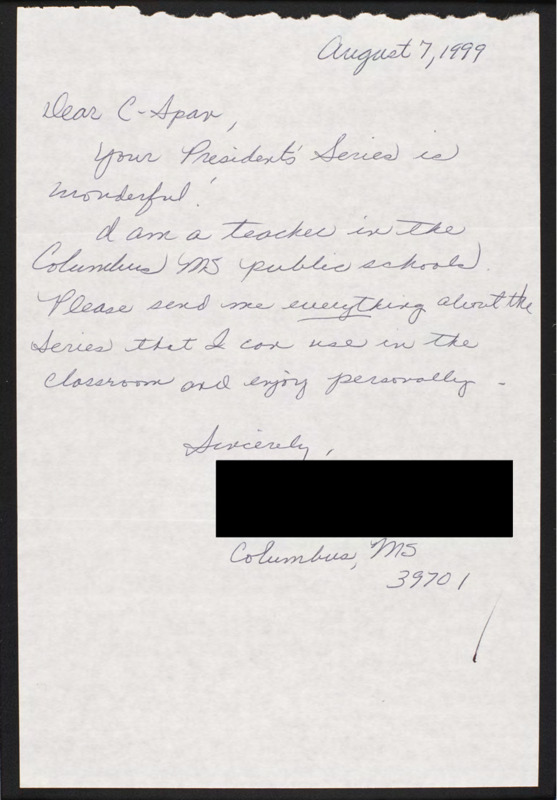 August 7, 1999
Dear C-Span,
Your President's Series is
wonderful!
I am a teacher in the
Columbus, MS public schools.
Please send me everything about the
series that I can use in the
classroom and enjoy personally.
Sincerely,
Columbus, MS
39701